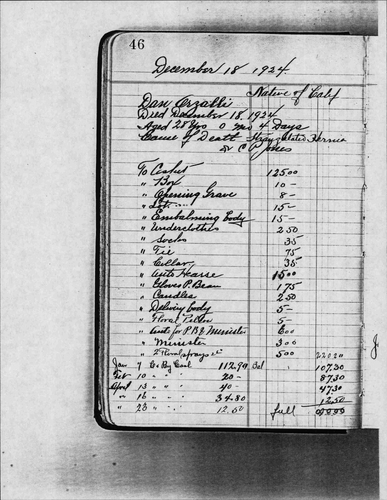 46
December 18 1924.
Native of Calif
Dan
Died December 15, 1924
Aged 28 Yrs 0 Mos Days
Cause of Death Strangulated Hernia
Dr C P Jones
To Casket 125.00
" Box 10 -
" Opening Grave 8 -
" Lot 15 -
" Embalming body 15 -
" Underclothes 2 50
" Socks 35
" Tie 75
" Collar 35
" Auto Hearse 15 00
" Gloves P. Bear 1 75
" Candles 2 50
" Delivery body 5 -
" Floral 5 -
" Auto for P.B. & Minister 6 00
" Minister 3 00
" 2 Floral sprays 5 00
Jan 7 Cr By Cash 112.90 Bal 107.30
Feb 10 " " 20 - 87.30
April 13 " " 40 - 47.30
" 16 " " 34.80 12.50
" 23 " " 12.50 full